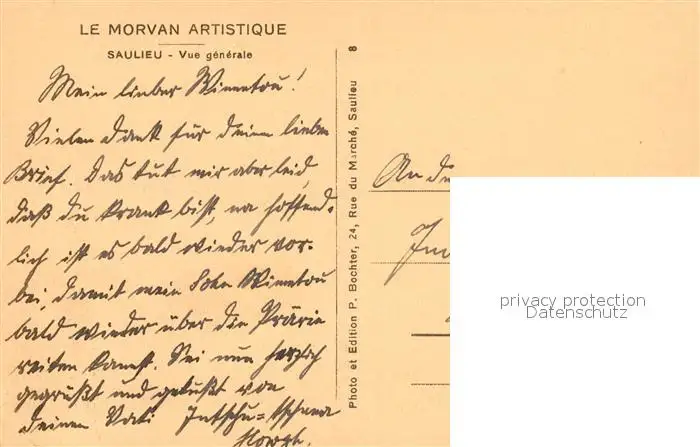 LE MORVAN ARTISTIQUE
SAULIEU - Vue générale
Mein lieber Winnetou!
Vielen Dank für deinen lieben
Brief. Das tut mir aber leid,
daß du krank bist, na hoffent-
lich ist es bald wieder vor-
bei, damit mein Sohn Winnetou
bald wieder über die Prärie
reiten kannst. Sei nun herzlich
gegrüßt und geküßt von
deinem Vati Intschu-tschuna
Howgh.
8
Photo et Edition P. Bochter, 24, Rue du Marché, Saulieu
An de
privacy protection
Datenschutz